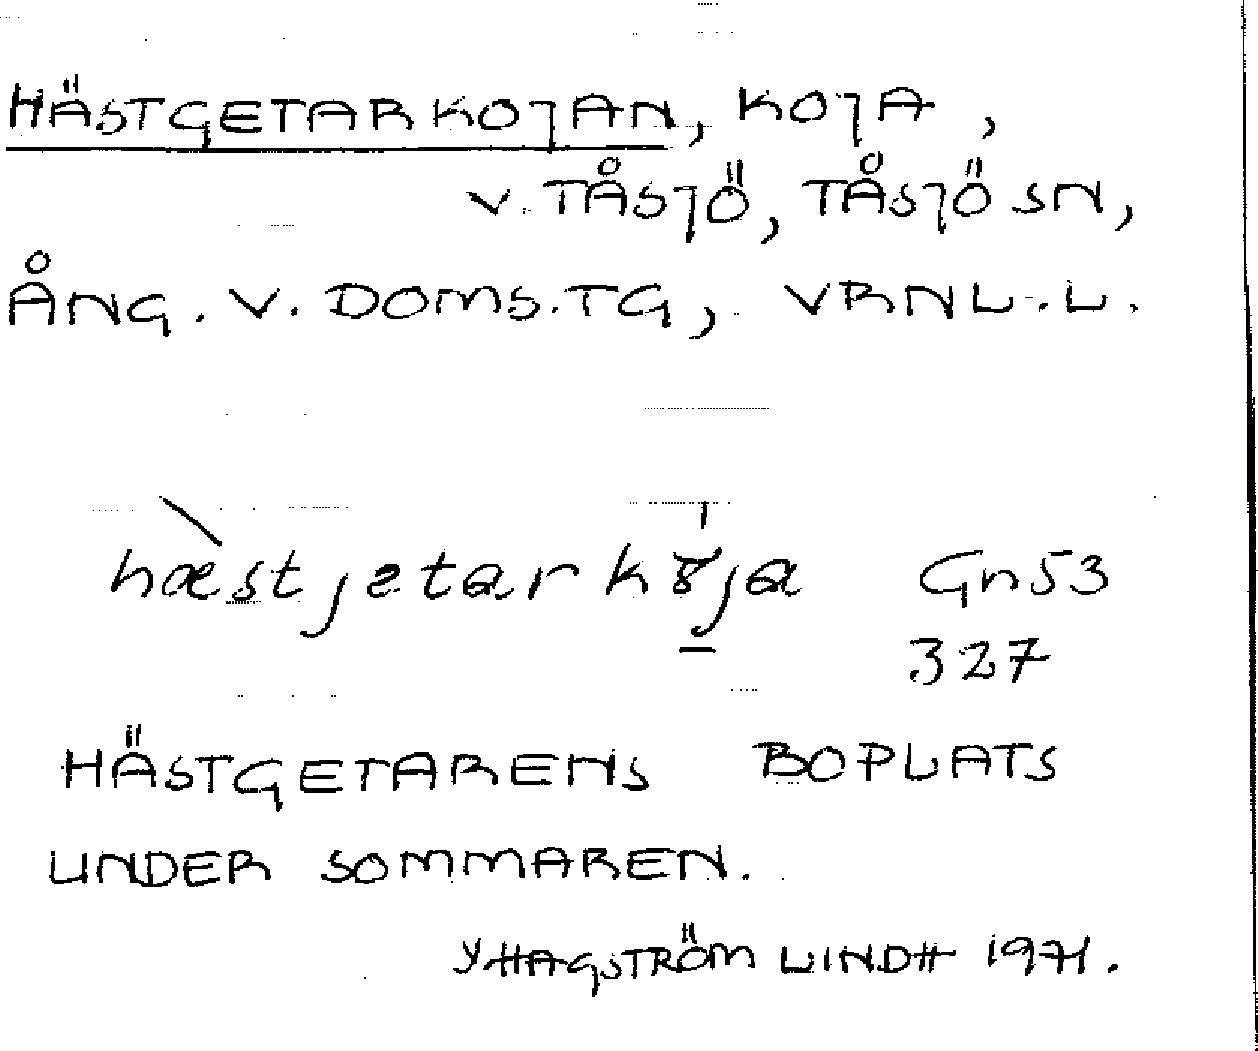 HÄSTGETARKOJAN, KOJA,
V. TÅSJÖ, TÅSJÖ SN,
ÅNG. V. DOMS.TG, VRNL.L.
hæstjetarkɤ̲ja Gn53
327
HÄSTGETARENS BOPLATS
UNDER SOMMAREN.
Y HAGSTRÖM LINDH 1971.